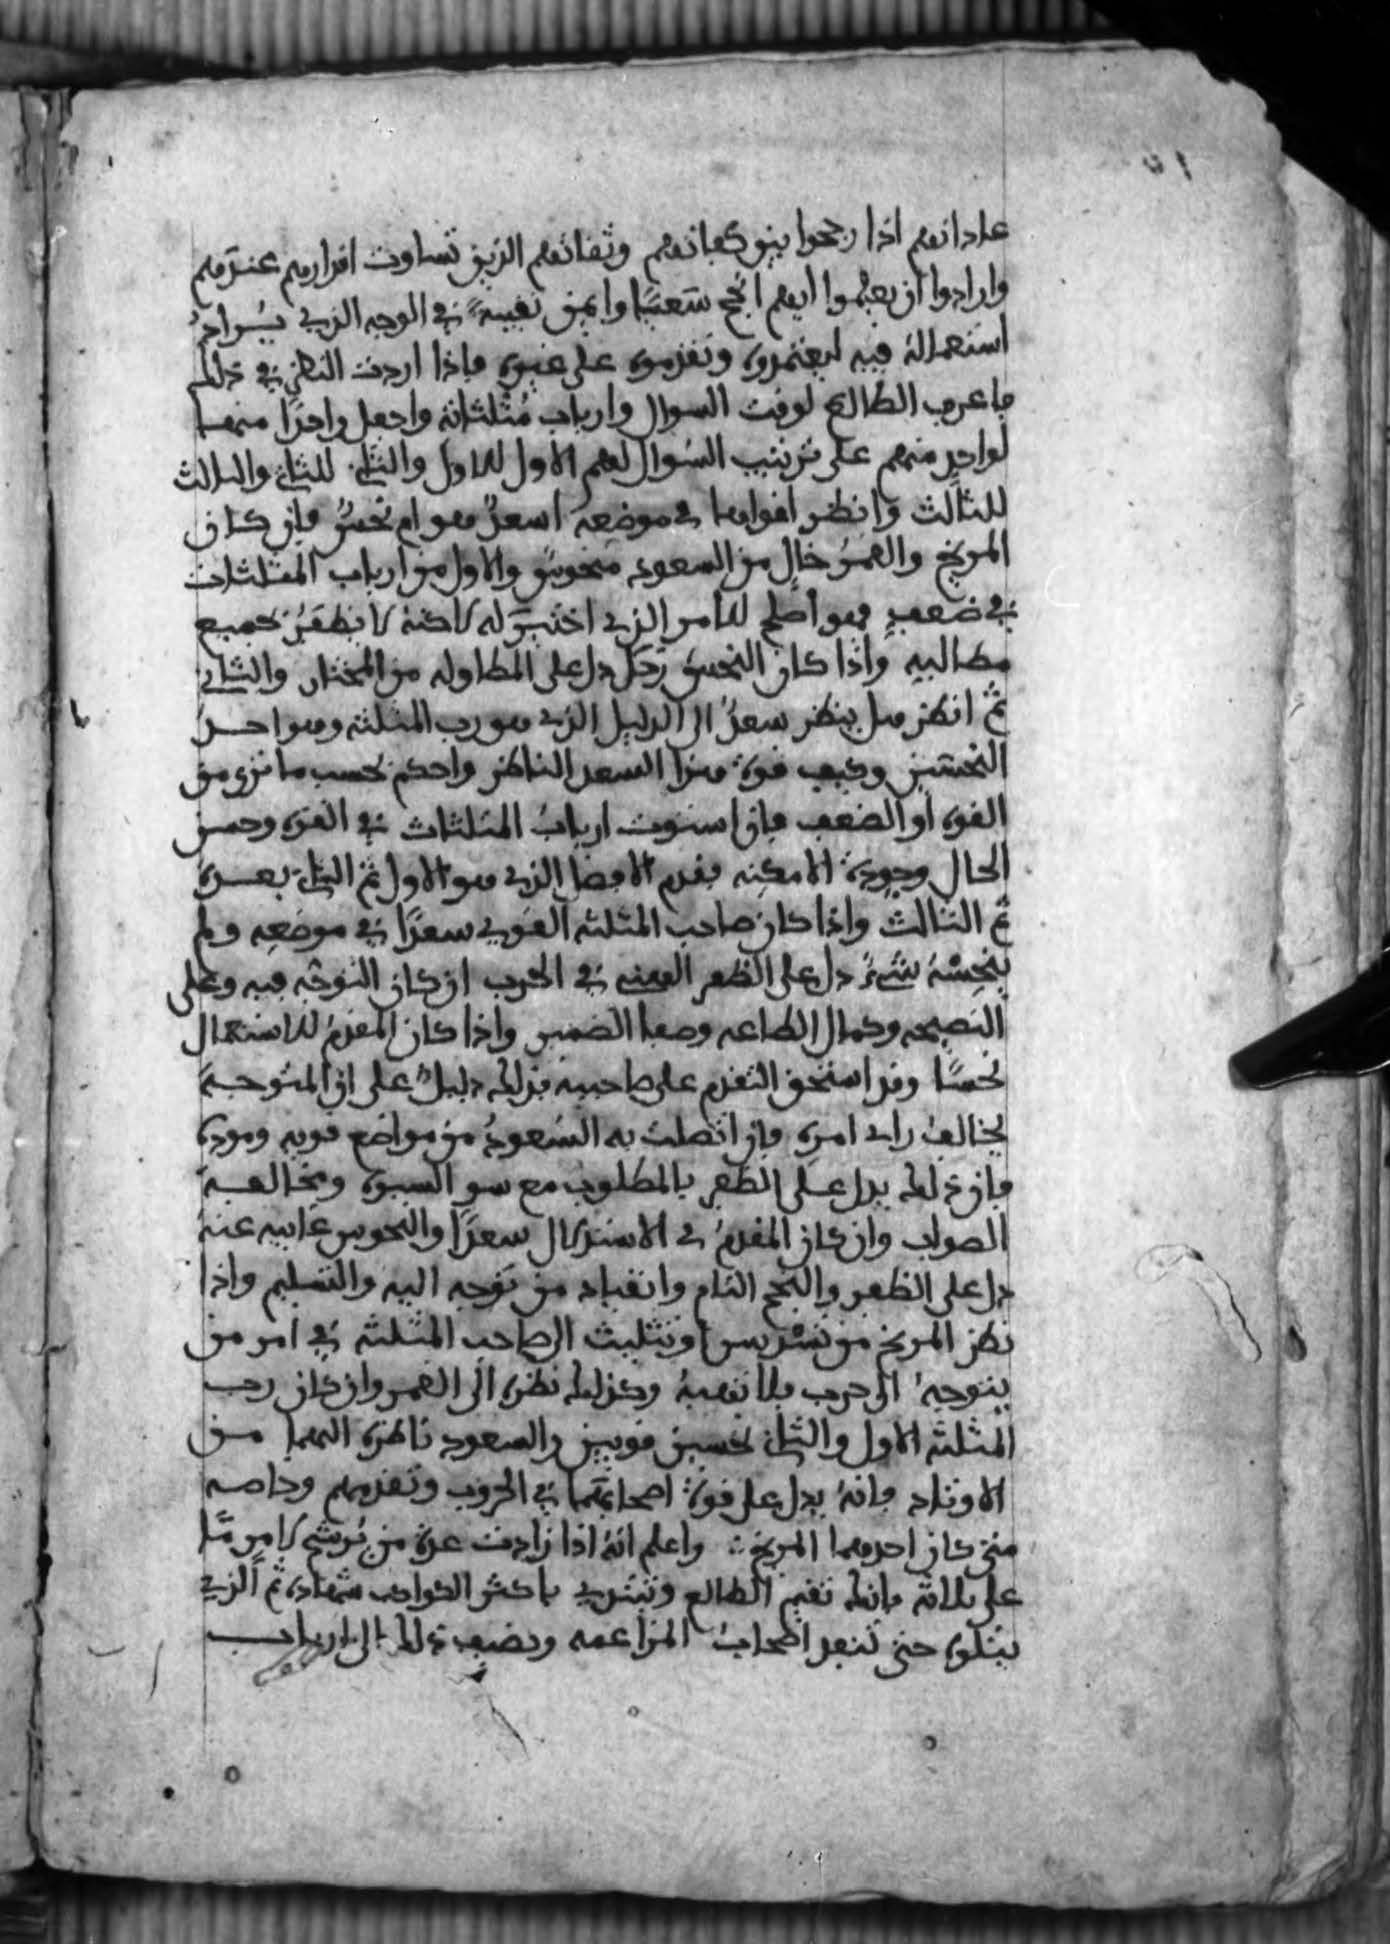 عاداتهم اذا رجحوا بين كفاتهم وثقاتهم الذين تساوت اقدارهم عندهم
وارادوا ان يعلموا ايهم انجح سعيًا وايمن نقيبة في الوجه الذي يراد
استعماله فيه ليعتمدوه وتقدموه على غيره فاذا اردت النظر في ذلك
فاعرف الطالع لوقت السوال وارباب مثلثاته واجعل واحدًا منها
لواحدٍ منهم على ترتيب السؤال لهم الاول للاول والثاني للثاني والثالث
للثالث وانظر اقواها في موضعه اسعدٌ هو ام نحسٌ فان كان
المريخ والقمرُ خالٍ من السعود منحوسٌ والاول من ارباب المثلثات
في ضعفٍ فهو اصلح للامر الذي اختير له لاكنه لا يظفرُ بجميع
مطالبه واذا كان النحسُ زحل دل على المطاوله من المختار والثاني
ثم انظر هل ينظر سعدٌ الى الدليل الذي هو رب المثلثه وهو احد
النحسين وكيف قوة هذا السعد الناظر واحكم بحسب ما ترى من
القوه او الضعف فان استوت اربابُ المثلثاث في القوه وحسن
الحال وجودة الامكنه فقدم الافضل الذي هو الاول ثم الثاني بعده
ثم الثالث واذا كان صاحب المثلثه القوي سعدًا في موضعه ولم
ينحسْهُ شيءٌ دل على الظفر في الحرب ان كان التوجّه فيه وعلى
النصيحه وكمال الطاعه وصفا الضمير واذا كان المقدمُ للاستعمال
نحسًا وقد استحق التقدم على صاحبيه فذلك دليلٌ على ان المتوجه
يخالفُ راى امره فان اتصلت به السُعودُ من مواضع قويه ومودة
فان ذلك يدل على الظفر بالمطلوب مع سو السيره ومخالفه
الصواب وان كان المقدمُ في الاستدلال سعدًا والنحوس غايبه عنه
دل على الظفر والنجح التام وانقياد من توجه اليه والتسليم واذا
نظر المريخ من تسديس او تثليث الى صاحب المثلثه في امر من
يتوجه الى حرب فلا تتهمه وكذلك نظره الى القمر وان كان رب
المثلثه الاول والثاني نحسين قويين والسعود ناظره اليهما من
الاوتاد فانه يدل على قوة اصحابهما في الحروب وتقدمهم وخاصه
متى كان احدهما المريخ ⁘ واعلم انه اذا زادت عدة من يُرشح لامرٍ ما
على ثلاثه فانك تقيم الطالع وتبتدي باكثر الكواكب شهاده ثم الذي
يتلوه حتى تنفد اصحابُ المزاعمه وتضيف ذلك الى ارباب